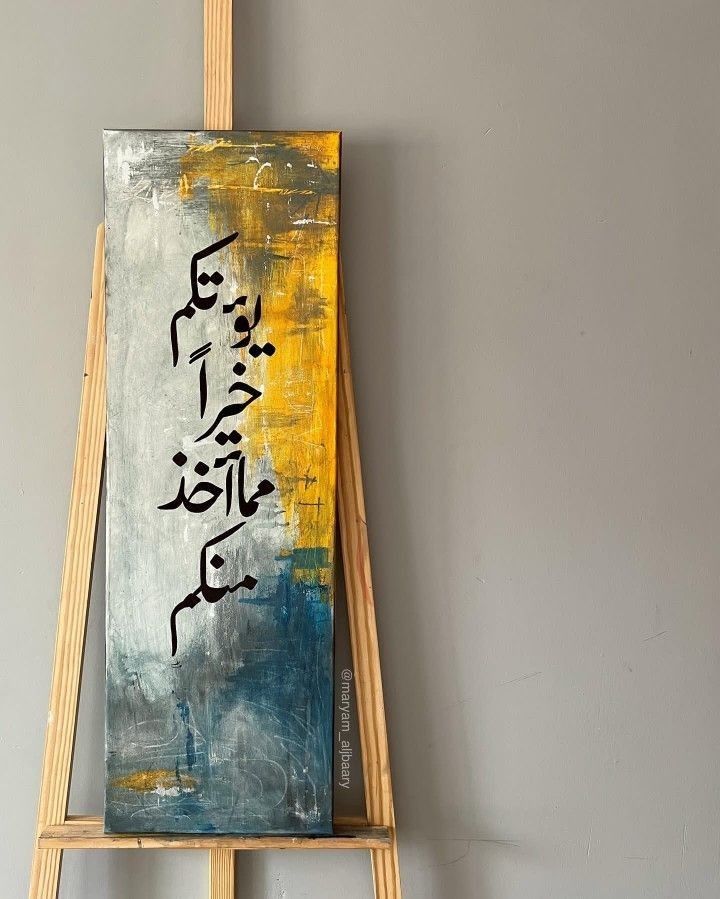 يؤتكم
خيراً
مما أخذ
منكم
@maryam_aljbaary